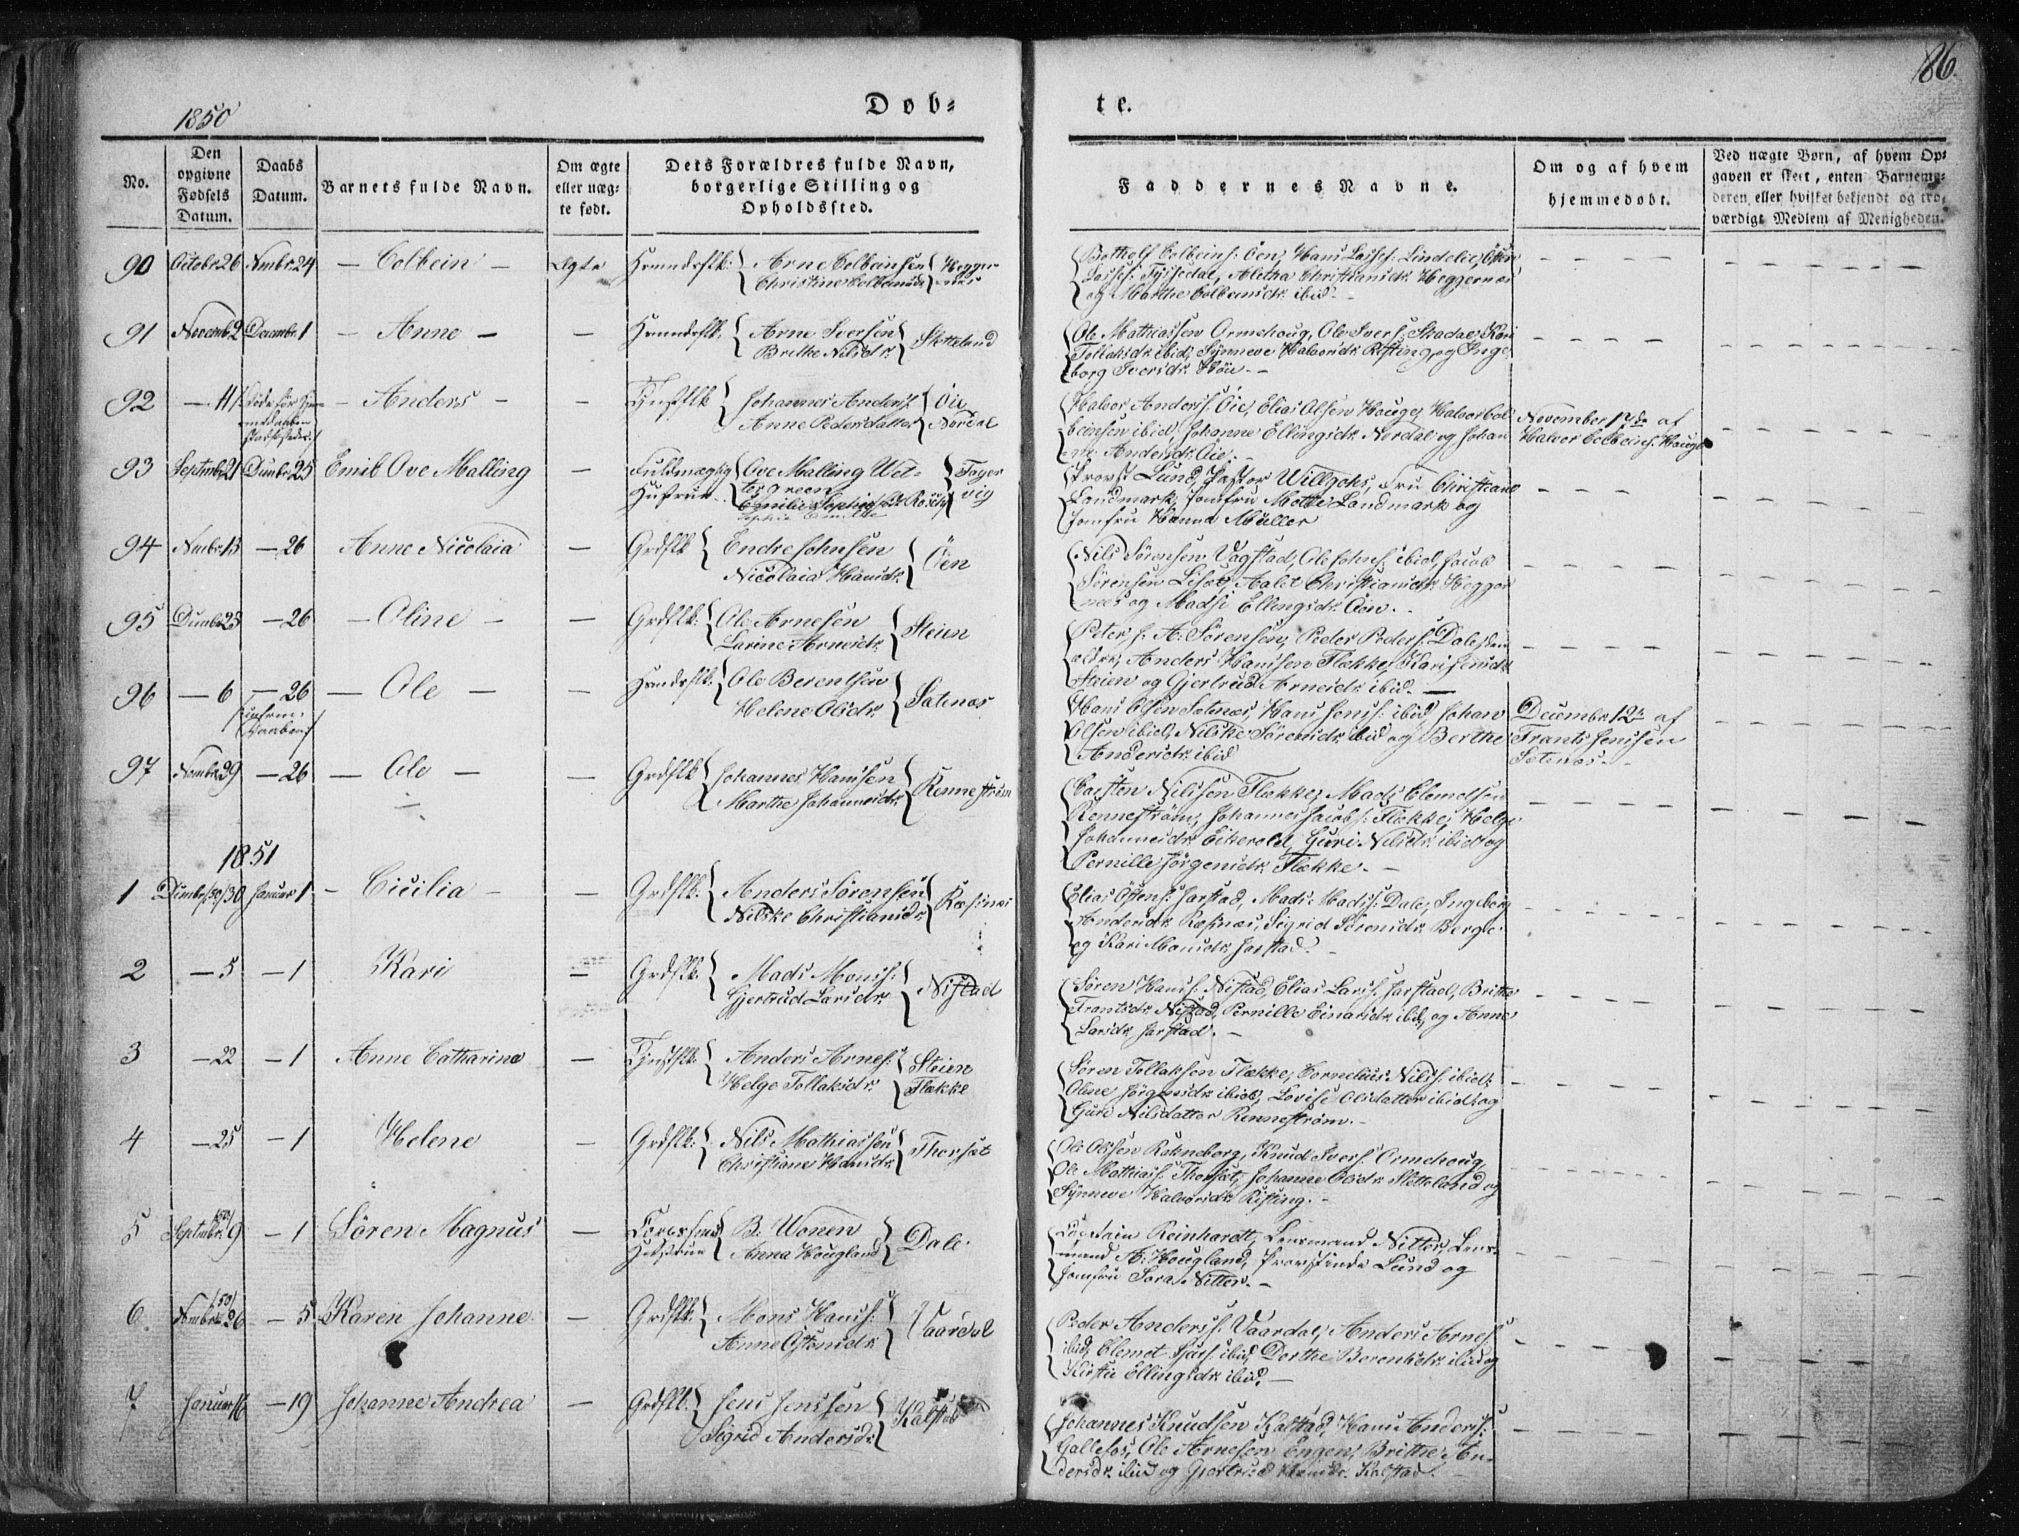 86.
1850
Døb=
te.
No.
Den opgivne Fødsels Datum.
Daabs Datum.
Barnets fulde Navn.
Om ægte eller uæg- te født.
Dets Forældres fulde Navn, borgerlige Stilling og Opholdssted.
Faddernes Navne.
Om og af hvem hjemmedøbt.
Ved uægte Børn, af hvem Op= gaven er skeet, enten Barnemo= deren eller hvilket bekjendt og tro= værdigt Medlem af Menigheden.
90 Octobr. 26 Nvmbr. 24 – Colbein – Ægte
Arne Colbeinsen
Christine Colbeinsdr.
Heggernæs
91 Novembr. 2 Decembr. 1 – Anne – –
Arne Iversen
Brithe Nilsdr.
Sletteland
Ole Mathiassen Ormehoug, Ole Ivers. Skadal, Kari
Tollaksdr. ibid, Synneve Halvorsdr. Risting, og Inge
borg Iversdr.
92 – 11 – Anders – –
Johannes Anders. Öie
Anne Pedersdatter Nordal
Halvor Anders. Öie, Elias Olsen Hauge, Halvor Col
beinsen ibid, Johanne Ellingsdr. Nordal og Johan
ne Andersdr. Öie.
November 12te af
Halvor Colbeins. Hauge
93 Septmbr. 21 Dcmbr. 25 Emil Ove Malling –
Fuldmægtig Ove Malling Wet-
tergreen
Hustrue Emilie Sophie
Sophie Emilie
Fager
vig
Provst Lund, Pastor Willochs, Fru Christiane
Landmark, Jomfru Mette Landmark og
Jomfru Hanna Müller
94 Nvmbr. 13 – 26 Anne Nicolaia –
Grdflk. Endre Johnsen
Nicolaia Hansdr. Öen
Nils Sörensen Vagstad, Ole Johns. ibid, Jacob
Sörensen Liset, Aalet Christiansdr. Hegger
næs og Madsi Ellingsdr. Öen.
95 Dcmbr. 23 – 26 – Oline – –
Grdflk. Ole Arnesen
Larine Arnesdr. Steien
Anders Hansen Flekke,
Steien og Gjertrud Arnesdr. ibid.
96 – 6 – 26 – Ole – –
Ole Berentsen
Helene Olsdr. Sætenæs
Hans Olsen Sætenæs, Hans Jens. ibid, Johan
Olsen ibid, Nilske Sörensdr. ibid og Berthe
Andersdr. ibid
Decembr. 12te af
Frants Jensen
Sætenæs.
97 Nvmbr. 29 – 26 – Ole – –
Grdflk. Johannes Hansen
Marthe Johannesdr. Rennestrøm
Carsten Nilssen Flekke, Mads Clemetsen
Rennestrøm, Johannes Jacobs. Flekke, Helge
Johannesdr. Eikerold, Guri Nilsdr. ibid og
Pernille Jörgensdr. Flekke.
1851
1 Dcmbr. /50/ 30 Januar 1 – Cicilia – –
Grdflk. Anders Sörensen
Nilske Christiansdr.
Elias Jarstad, Mads Mads. Dale, Ingeborg
Andersdr. Sigrid Sörensdr. Berge
og Kari Monsdr. Jarstad.
2 – 5 – 1 Kari –
Grdflk. Mads Mons.
Gjertrud Larsdr. Nistad
Sören Hans. Nistad, Elias Lars. Jarstad, Brithe
Frantsdr. Nistad, Pernille Einarsdr. ibid, og Anne
Larsdr. Jarstad.
3 – 22 – 1 Anne Catharina –
Anders Arnes. Steien
Helge Tollaksdr. Flekke
Sören Tollaksen Flekke, Cornelius Nils. ibid,
Oline Jörgensdr. ibid, Lovise Olsdatter ibid og
Guri Nilsdatter Rennestrøm.
4 – 25 – 1 Helene –
Grdflk. Nils Mathiassen
Christiane Hansdr. Thorsæt
Ole Olssen Rakneberg, Knud Ivers. Ormehoug,
Ole Mathias. Thorsæt, Johanne Olsdr. Sletteland og
Synneve Halvorsdr. Risting.
5 Septmbr. /50/ 9 – 1 Sören Magnus –
B. Wonen
Anna Hougland Dale.
Captain Reinhardt, Lensmand Nitter, Lens-
mand A. Hougland, Provstinde Lund og
Jomfru Sara Nitter.
6 Nvmbr. /50/ 26 – 5 Karen Johanne –
Grdflk. Mons Hans.
Anne Vaardal
Peder Anders. Vaardal, Anders Arnes.
ibid, Clemet ibid, Dorthe Berentsdr. ibid og
Kirsti Ellingsdr. ibid.
7 Januar 16 – 19 Johanne Andrea –
Grdflk. Jens Jenssen
Sigrid Andersdr. Kalstad
Johannes Knudsen Kalstad, Hans Anders.
Ole Arnesen Engen, Brithe An-
dersdr. ibid og Gjertrud Kalstad.